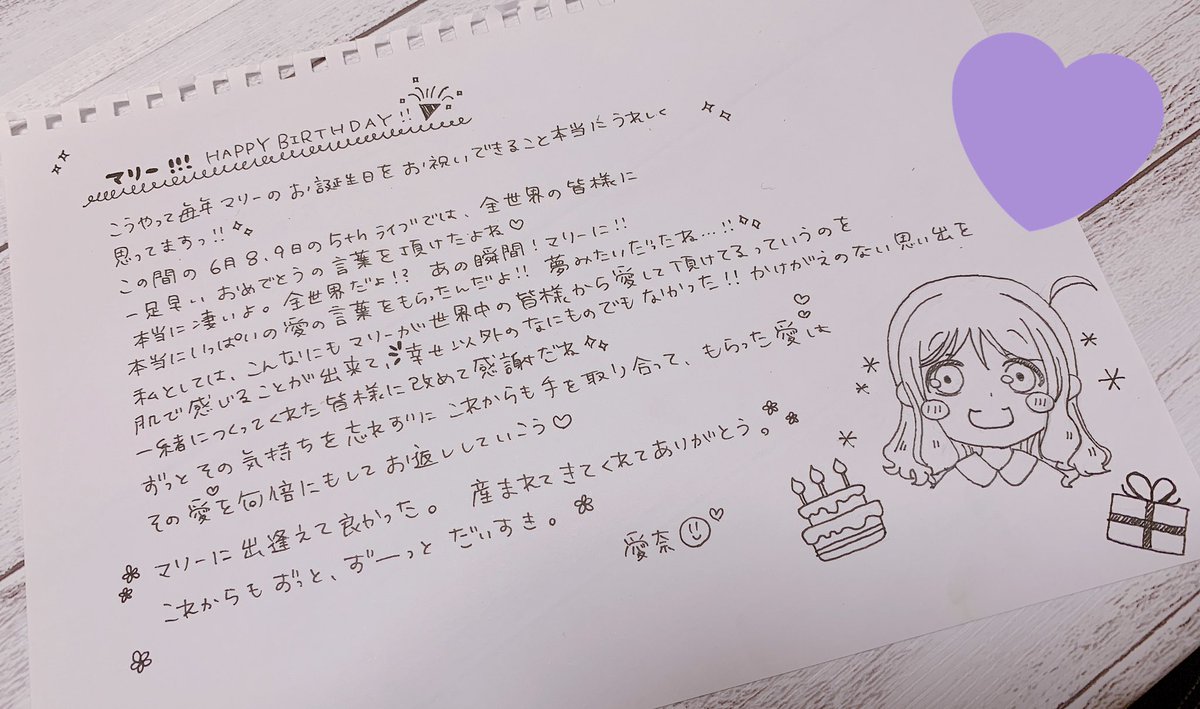 マリー!!! HAPPY BIRTHDAY!!
こうやって毎年マリーのお誕生日をお祝いできること本当にうれしく
思ってますっ!!
この間の6月8、9日の5thライブでは、全世界の皆様に
一足早いおめでとうの言葉を頂けたよね♡
本当に凄いよ。全世界だよ!? あの瞬間!マリーに!!
本当にいっぱいの愛の言葉をもらったんだよ!! 夢みたいだったね…!!
私としては、こんなにもマリーが世界中の皆様から愛して頂けてるっていうのを
肌で感じることが出来て、幸せ以外のなにものでもなかった!! かけがえのない思い出を
一緒につくってくれた皆様に改めて感謝だね
ずっとその気持ちを忘れずにこれからも手を取り合って、もらった愛は
その愛を何倍にもしてお返ししていこう♡
マリーに出逢えて良かった。 産まれてきてくれてありがとう。
これからもずっと、ずーっとだいすき。
愛奈